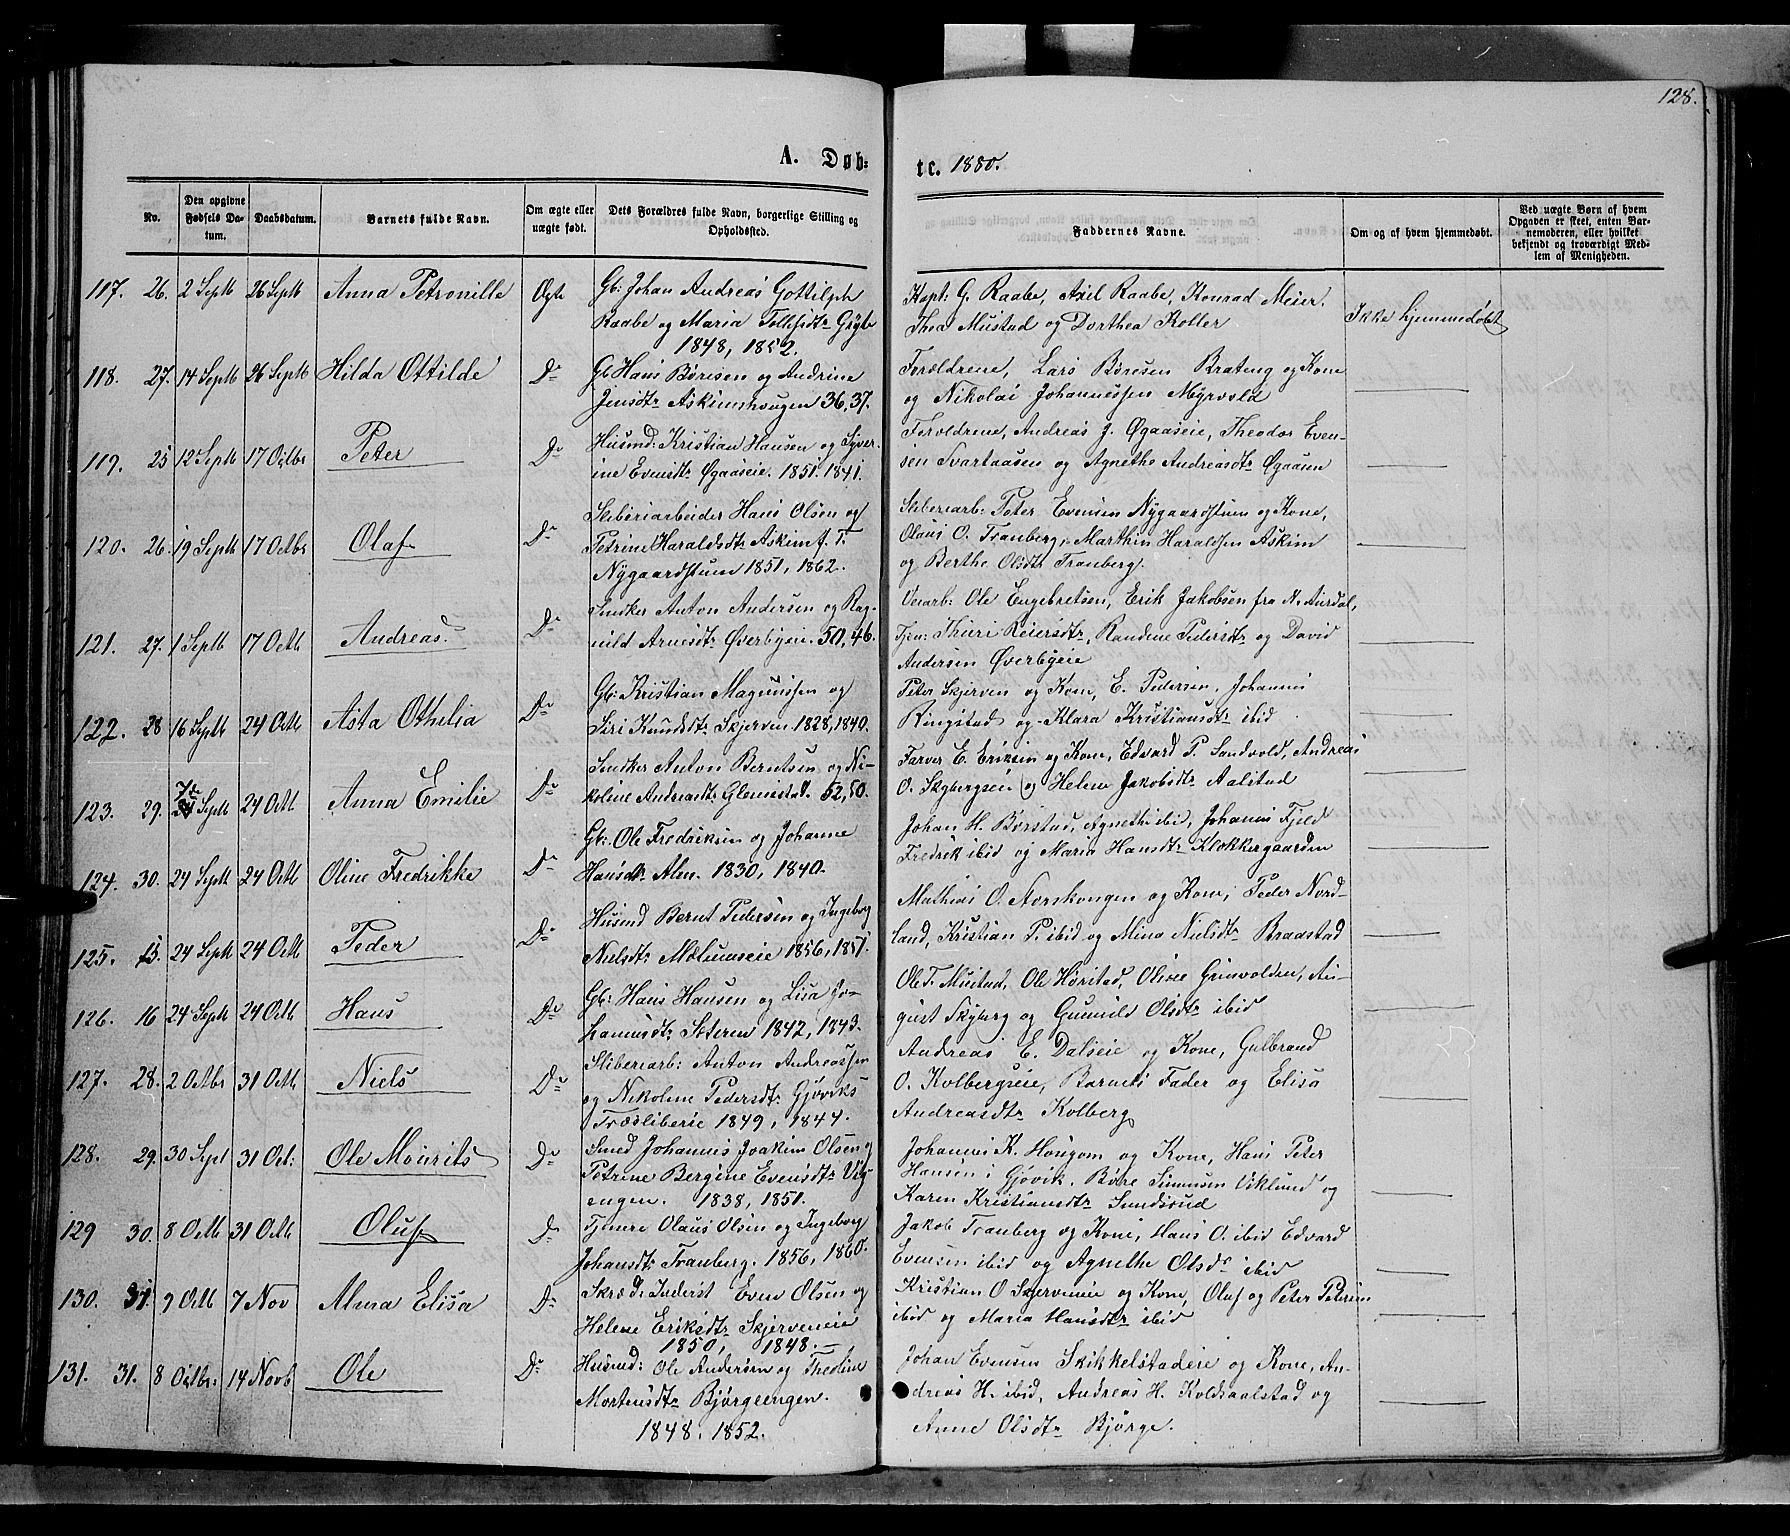 128.
A. Døb= te. 1880.
No.
Den opgivne Fødsels Da-tum.
Daabsdatum.
Barnets fulde Navn.
Om ægte eller uægte født.
Dets Forældres fulde Navn, borgerlige Stilling og Opholdssted.
Faddernes Navne.
Om og af hvem hjemmedøbt.
Ved uægte Børn af hvem Opgaven er skeet, enten Bar-nemoderen, eller hvilket bekjendt og troværdigt Med-lem af Menigheden.
117. 26. 2 Septb 26 Septb Anna Petronille Ægte
Gb: Johan Andreas Gottilph
Raabe og Maria Tollefsdtr Gryte
1848, 1852.
Kapt: G. Raabe, Axel Raabe, Konrad Meier.
Thea Mustad og Dorthea Koller
Ikke hjemmedøbt
118. 27. 14 Septb 26 Septb Hilda Ottilde Do
Gb Hans Børesen og Andrine
Jensdtr Askimshougen 36, 37.
Forældrene, Lars Børesen Brateng og Kone
og Nikolai Johannessen Myrvold
119. 25 12 Septb 17 Octbr Peter Do
Husmd: Kristian Hansen og Syver-
ine Evensdtr Øgaaseie. 1851. 1841.
Forældrene, Andreas J. Øgaaseie, Theodor Even-
sen Svartaasen og Agnethe Andreasdtr Øgaasen
120. 26. 19 Septb 17 Octbr Olaf Do
Sliberiarbeider Hans Olsen og
Petrine Haraldsdtr Askim f. T.
Nygaardstuen 1851, 1862.
Sliberiarb: Peter Evensen Nygaardstuen og Kone,
Olaus O. Tranberg, Marthin Haraldsen Askim
og Berthe Olsdtr Tranberg.
121. 27. 1 Septb 17 Octb Andreas. Do
Snedker Anton Andersen og Rag-
nild Arnesdtr Øverbyeie. 50, 46.
Veiarb: Ole Engebretsen, Erik Jakobsen fra N. Aurdal,
Tjen: Thuri Reiersdtr, Randene Pedersdtr og David
Andersen Øverbyeie
122. 28 16 Septb 24 Octb Asta Othelia Do
Gb: Kristian Magnussen og
Siri Knudsdtr Skjerven. 1828, 1840.
Peter Skjerven og Kone, E. Pedersen, Johannes
Ringstad og Klara Kristiansdtr ibid
123. 29. Septb 24 Octb Anna Emilie Do
Snedker Anton Berntsen og Ni-
koline Andreasdtr Glemmestad. 52, 50.
Farver E. Eriksen og Kone, Edvard P. Sandvold, Andreas
O. Skybergseie og Helene Jakobsdtr Aalstad
124. 30. 24 Septb 24 Octb Oline Fredrikke Do
Gb: Ole Fredriksen og Johanne
Hansdtr Alm. 1830, 1840.
Johan H. Børstad, Agnethe ibid, Johannes Fjeld
Fredrik ibid og Maria Hansdtr Klokkergaarden
125. 15. 24 Septb 24 Octb Peder Do
Husmd Bernt Pedersen og Ingeborg
Nielsdtr Mælumseie 1856, 1851.
Mathias O. Aorskougen og Kone, Peder Nord-
land, Kristian P. ibid og Mina Nielsdtr Braastad
126. 16 24 Septb 24 Octb Hans Do
Gb: Hans Hansen og Lisa Jo-
hannesdtr Sæteren 1842, 1843.
Ole T. Mustad, Ole Hørstad, Olive Grinvolden, Au-
gust Skyberg og Gunnild Olsdtr ibid
127. 28. 2 Octbr 31 Octb Niels Do
Sliberiarb: Anton Andreassen
og Nikoline Pedersdtr Gjøviks
Træsliberie 1849, 1844.
Andreas E. Dalseie og Kone, Gulbrand
O. Kolbergseie, Barnets Fader og Elisa
Andreasdtr Kolberg
128. 29. 30 Sept 31 Oct: Ole Mourits Do
Smed Johannes Joakim Olsen og
Petrine Bergine Evensdtr Vig-
engen. 1838, 1851.
Johannes K. Hougom og Kone, Hans Peter
Hansen i Gjøvik. Børe Simensen Viklund og
Karen Kristiansdtr Sundsrud
129 30. 8 Octb 31 Octb Oluf Do
Tjenere Olaus Olsen og Ingeborg
Johansdtr Tranberg. 1856, 1860.
Jakob Tranberg og Kone, Hans O. ibid Edvard
Evensen ibid og Agnethe Olsdtr ibid
130. 31. 9 Octb 7 Nov Alma Elisa Do
Skræd. Inderst Even Olsen og
Helene Eriksdtr Skjerveneie
1850, 1848.
Kristian O Skjerveneie og Kone, Oluf og Peter Petersen
ibid og Maria Hansdtr ibid
131. 31. 8 Octbr: 14 Novb Ole Do
Husmd: Ole Andersen og Theoline
Mortensdtr Bjørgeengen.
1848. 1852.
Johan Evensen Skikkelstadeie og Kone, An-
dreas H. ibid, Andreas H. Koldsaalstad og
Anne Olsdtr Bjørge.